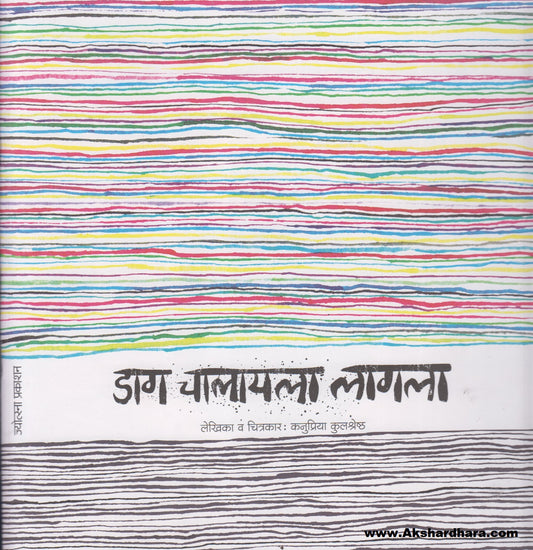 डाग चालायला लागला
लेखिका व चित्रकार: कनुप्रिया कुलश्रेष्ठ
ज्योत्स्ना प्रकाशन
www.Akshardhara.com